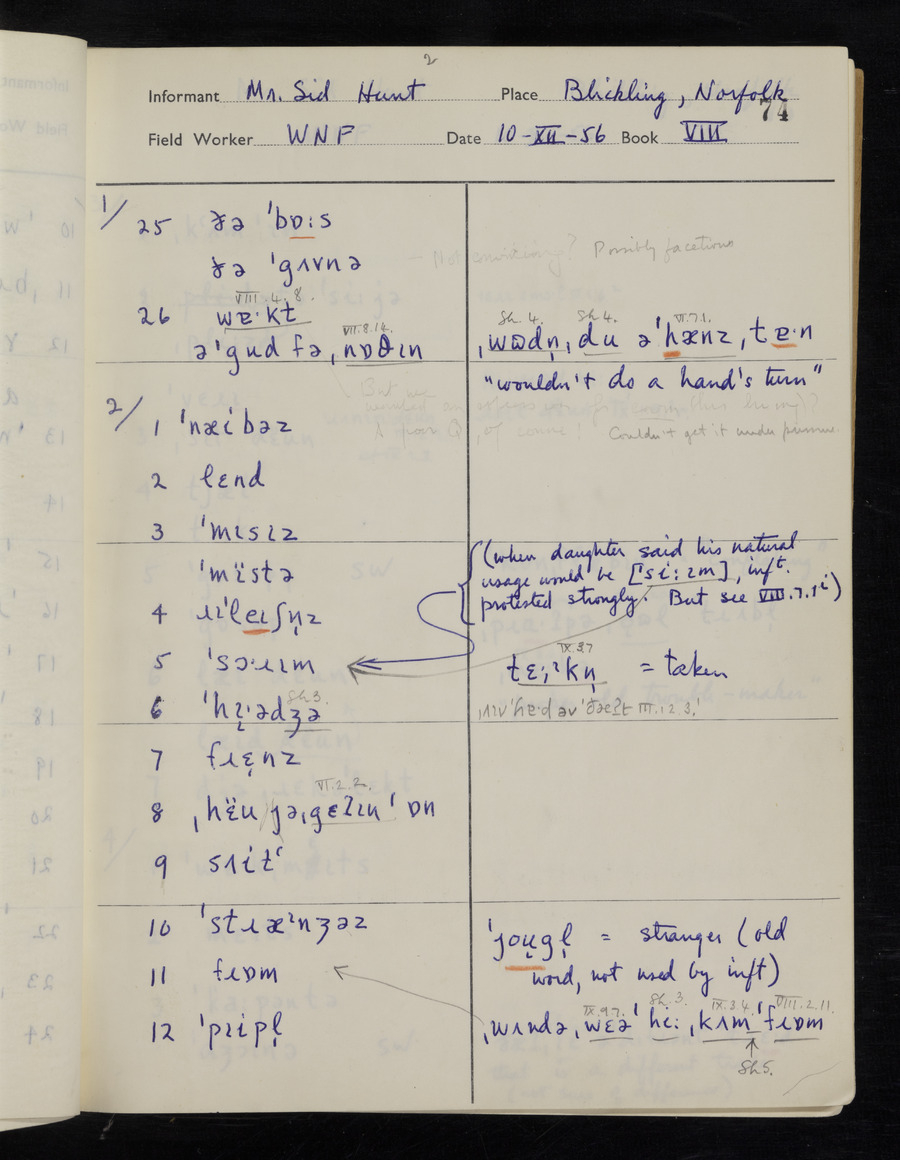 2
Informant Mr. Sid Hunt Place Blickling, Norfolk
74
Field Worker WNF Date 10-XII-56 Book VIII
1/ 25 ðə ˈbɒːs
ðə ˈgʌvnə
Not convincing? Possibly facetious
VIII.4.8.
26 wɐ·kt
VII.8.14.
əˈgud fə ˌnɒθɪn
Sh. 4. Sh. 4. VI.7.1.
ˌwɒdn̩ ˌdu əˈhænz ˌtɐ·n
"wouldn't do a hand's turn"
But we
Couldn't get it under pressure
2/ 1 ˈnæibəz
2 lɛnd
3 ˈmɪsɪz
ˈmïstə
4 ɹɪˈleɪʃn̩z
5 ˈsɔ·ɹɪm
Sh 3.
6 ˈhɪ̞·ədʒə
(when daughter said his natural
usage would be [ˈsiːɪm], inft.
protested strongly. But see VIII.7.1ⁱ)
IX.3.7
tɛ̞ːˀkn̩ = taken
III.12.3.
7 fɹɛ̞nz
VI.2.2.
8 ˌhëu jə ˌgɛʔɪnˈ ɒn
9 sʌitʻ
10 ˈstɹæˀnʒəz
ˈjou̞gl̩ = stranger (old
word, not used by inft)
11 fɹɒm
IX.9.7. Sh. 3. IX.3.4. VIII.2.11.
ˌwʌndə ˌwɛəˈ hɪ: ˌkʌm ˈfɹɒm
Sh 5.
12 ˈpɪipl̩